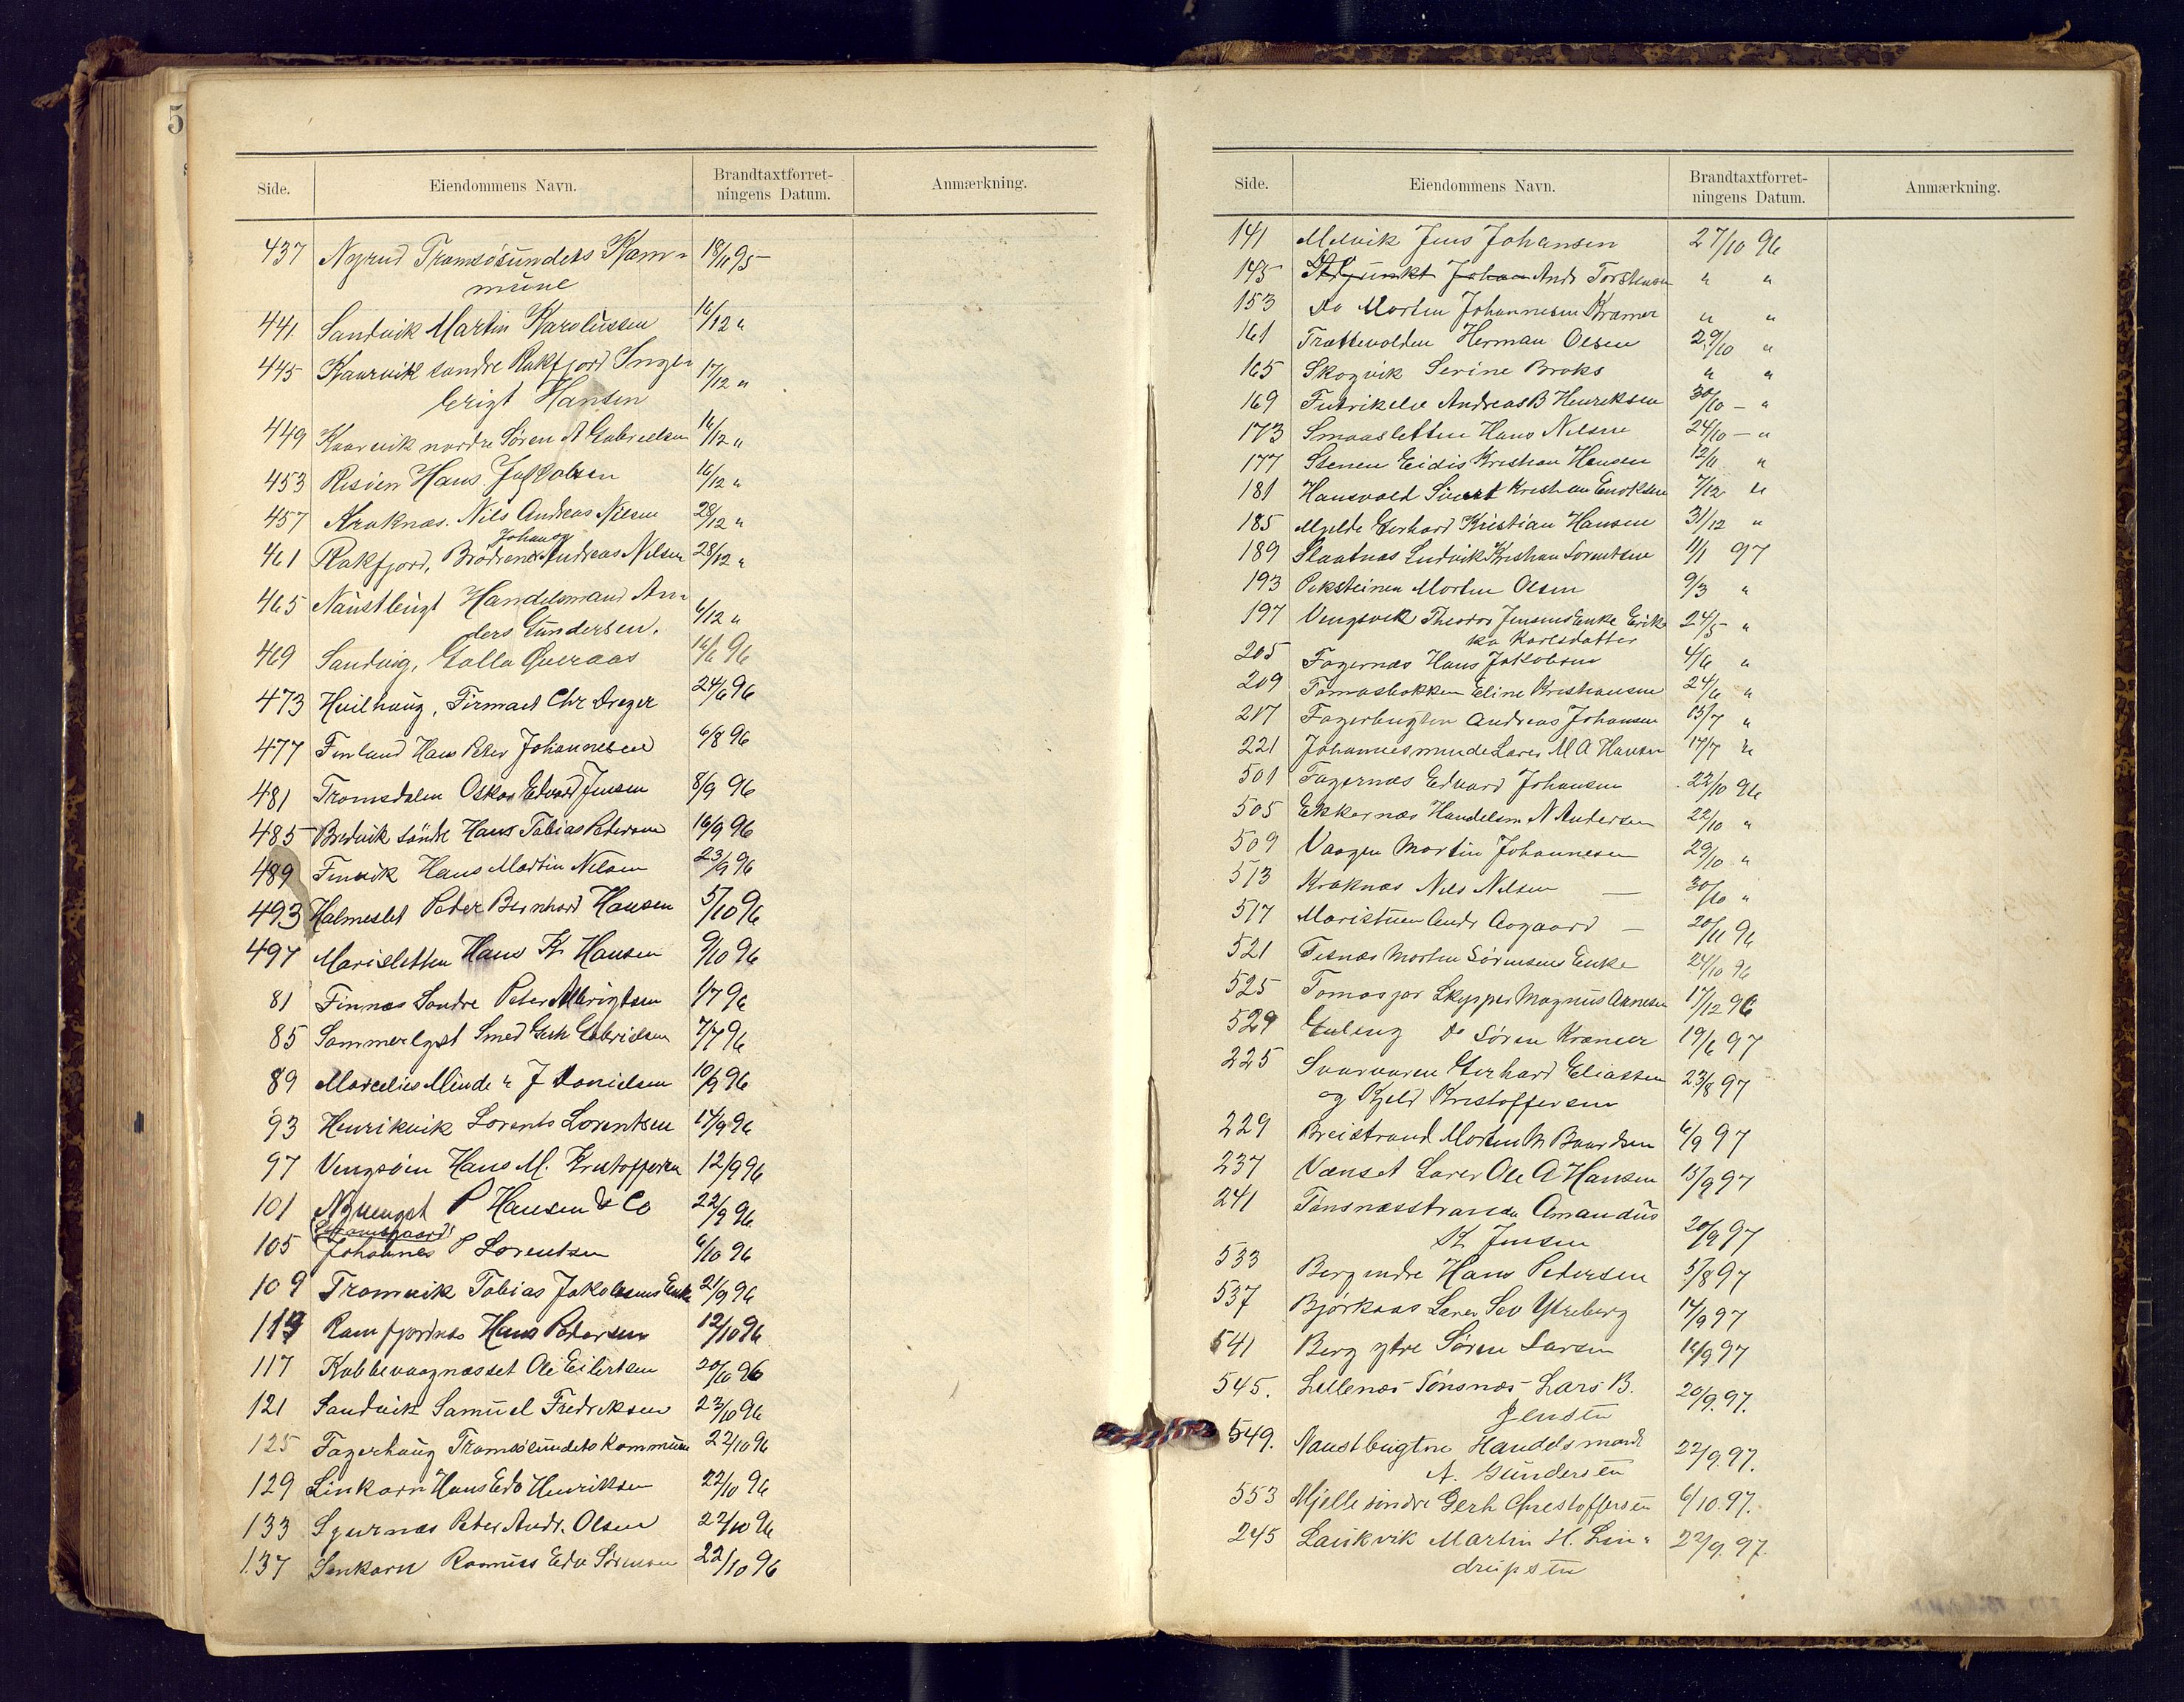 5
Side. Eiendommens Navn. Brandtaxtforret-
ningens Datum. Anmærkning.
437 Nyrud Tromsøsundets Kom- 18/11 95
mune
441 Sandvik Martin Karolussen 16/12 "
445 Kaarvik søndre Rakfjord Inge- 17/12 "
brigt Hansen
449 Kaarvik nordre Søren A Gabrielsen 16/12 "
453 Risøen Hans Jakobsen 16/12 "
457 Kraknæs. Nils Andreas Nilsen 28/12 "
Johan og
461 Rakfjord, Brødrene Andreas Nilsen 28/12 "
465 Naustbugt Handelsmand An- 6/12 "
ders Gundersen.
469 Sandvig, Galla Qveraas 16/6 96
473 Heilhaug, Firmaet Chr Dreyer 24/6 96
477 Finland Hans Peter Johannesen 6/8 96
481 Tromsdalen Oskar Edvard Jensen 8/9 96
485 Bredvik søndre Hans Tobias Pedersen 16/9 96
489 Finvik Hans Martin Nilsen 23/9 96
493 Halmeslet Peder Bernhard Hansen 5/10 96
497 Marisletten Hans K. Hansen 9/10 96
81 Finnæs Søndre Peter Albrigtsen 1/7 96
85 Sommerlyst Smed Erik Gabrielsen 7/7 96
89 Marcelius Minde " J Danielsen 10/9 96
93 Henrikvik Lorents Lorentsen 14/9 96
97 Vengsøen Hans M. Kristoffersen 12/9 96
101 Nyvengst P Hansen & Co 22/9 96
105 Johannes P Lorentsen 6/10 96
109 Tromvik Tobias Jakobsens Enke 21/9 96
113 Ramfjordnes Hans Pedersen 12/10 96
117 Kobbevaagnæsset Ole Eilertsen 20/10 96
121 Sandvik Samuel Fredriksen 23/10 96
125 Fagerhaug Tromsøsundets kommune 22/10 96
129 Linkorn Hans Edv Henriksen 22/10 96
133 Sjurnæs Peter Andr. Olsen 22/10 96
137 Sankorn Rasmus Edv Sørensen 22/10 96
Side. Eiendommens Navn. Brandtaxtforret-
ningens Datum. Anmærkning.
141 Melvik Jens Johansen 27/10 96
145 Johan Andr Torstensen " "
153 Do Morten Johannesen Kramer " "
161 Trættevolden Herman Olsen 29/10 "
165 Skogvik Serine Broks " "
169 Andreas B Henriksen 30/10 - "
173 Smaasletten Hans Nilsen 24/10 - "
177 Stenen Eidis Kristian Hansen 12/11 "
181 Hansvold Sivert Kristian Enoksen 7/12 "
185 Mjelde Gerhard Kristian Hansen 31/12 "
189 Slaatnæs Ludvik Kristian Lorentsen 11/1 97
193 Peksteinen Morten Olsen 9/3 "
197 Vengsvik Theodor Jensens Enke Erik- 24/5 "
ka Karlsdatter
205 Fagernæs Hans Jakobsen 4/6 "
209 Tomasbakken Eline Kristiansen 24/6 "
217 Fagerbugten Andreas Johansen 15/7 "
221 Johannesminde Lærer M A Hansen 17/7 "
501 Fagernæs Edvard Johansen 22/10 96
505 Ekkernæs Handelsm N Andersen 22/10 "
509 Vaagen Martin Johannesen 29/10 "
513 Kraknæs Nils Nilsen — 30/10 "
517 Maristuen Andr Aagaard — 20/11 96
521 Tisnæs Morten Sørensens Enke 24/10 96
525 Tomasjor Skypper Magnus Arnesen 17/12 96
529 Do Søren Kræmer 19/6 97
225 Svarvaren Gerhard Eliassen 23/8 97
og Kjeld Kristoffersen
229 Breistrand Morten M Baardsen 6/9 97
237 Vænset Lærer Ole A Hansen 15/9 97
241 Tønsnæsstranda Amandus 20/9 97
K. Jensen
533 Berg indre Hans Pedersen 5/8 97
537 Bjørkaas Lærer Sev Ytreberg 14/9 97
541 Berg ytre Søren Larsen 16/9 97
545. Lillenæs Tønsnæs Lars B. 20/9. 97.
Jensen
549. Naustbugten Handelsmand 22/9. 97.
A. Gundersen
553 Mjelle søndre Gerh Christoffersen 6/10. 97.
245 Laukvik Martin H. Lin- 22/9. 97.
drupsen